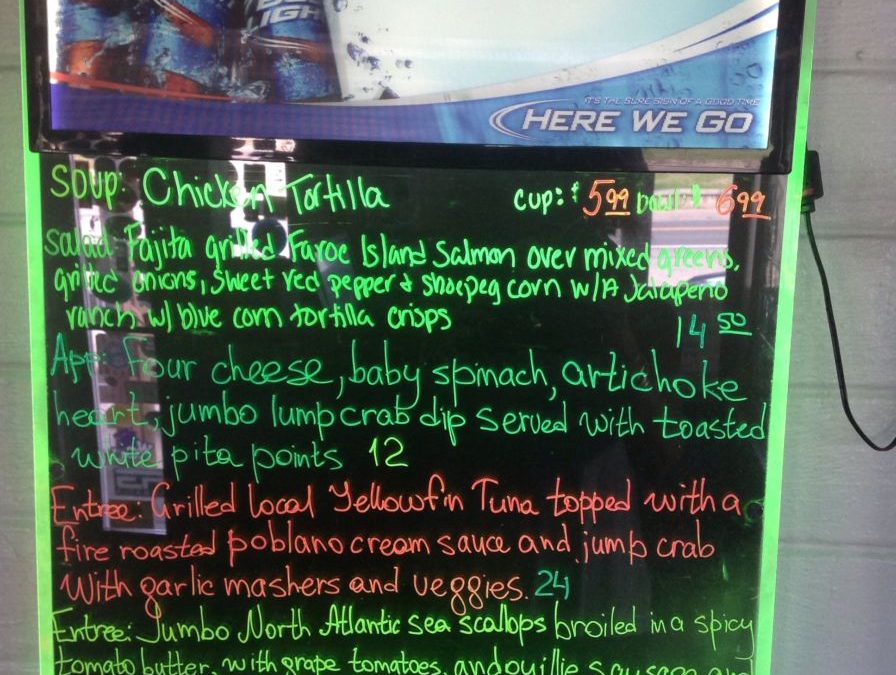 LIGHT
IT'S THE SURE SIGN OF A GOOD TIME
HERE WE GO
Soup: Chicken Tortilla cup: $5.99 bowl $ 6.99
Salad: Fajita grilled Faroe Island Salmon over mixed greens,
grilled onions, sweet red pepper & shoepeg corn w/A Jalapeno
ranch w/ blue corn tortilla crisps
14 50
App: Four cheese, baby spinach, artichoke
heart, jumbo lump crab dip served with toasted
white pita points 12
Entree: Grilled local Yellowfin Tuna topped with a
fire roasted poblano cream sauce and jump crab
With garlic mashers and veggies. 24
Entree: Jumbo North Atlantic sea scallops broiled in a spicy
tomato butter, with grape tomatoes, andouille sausage and